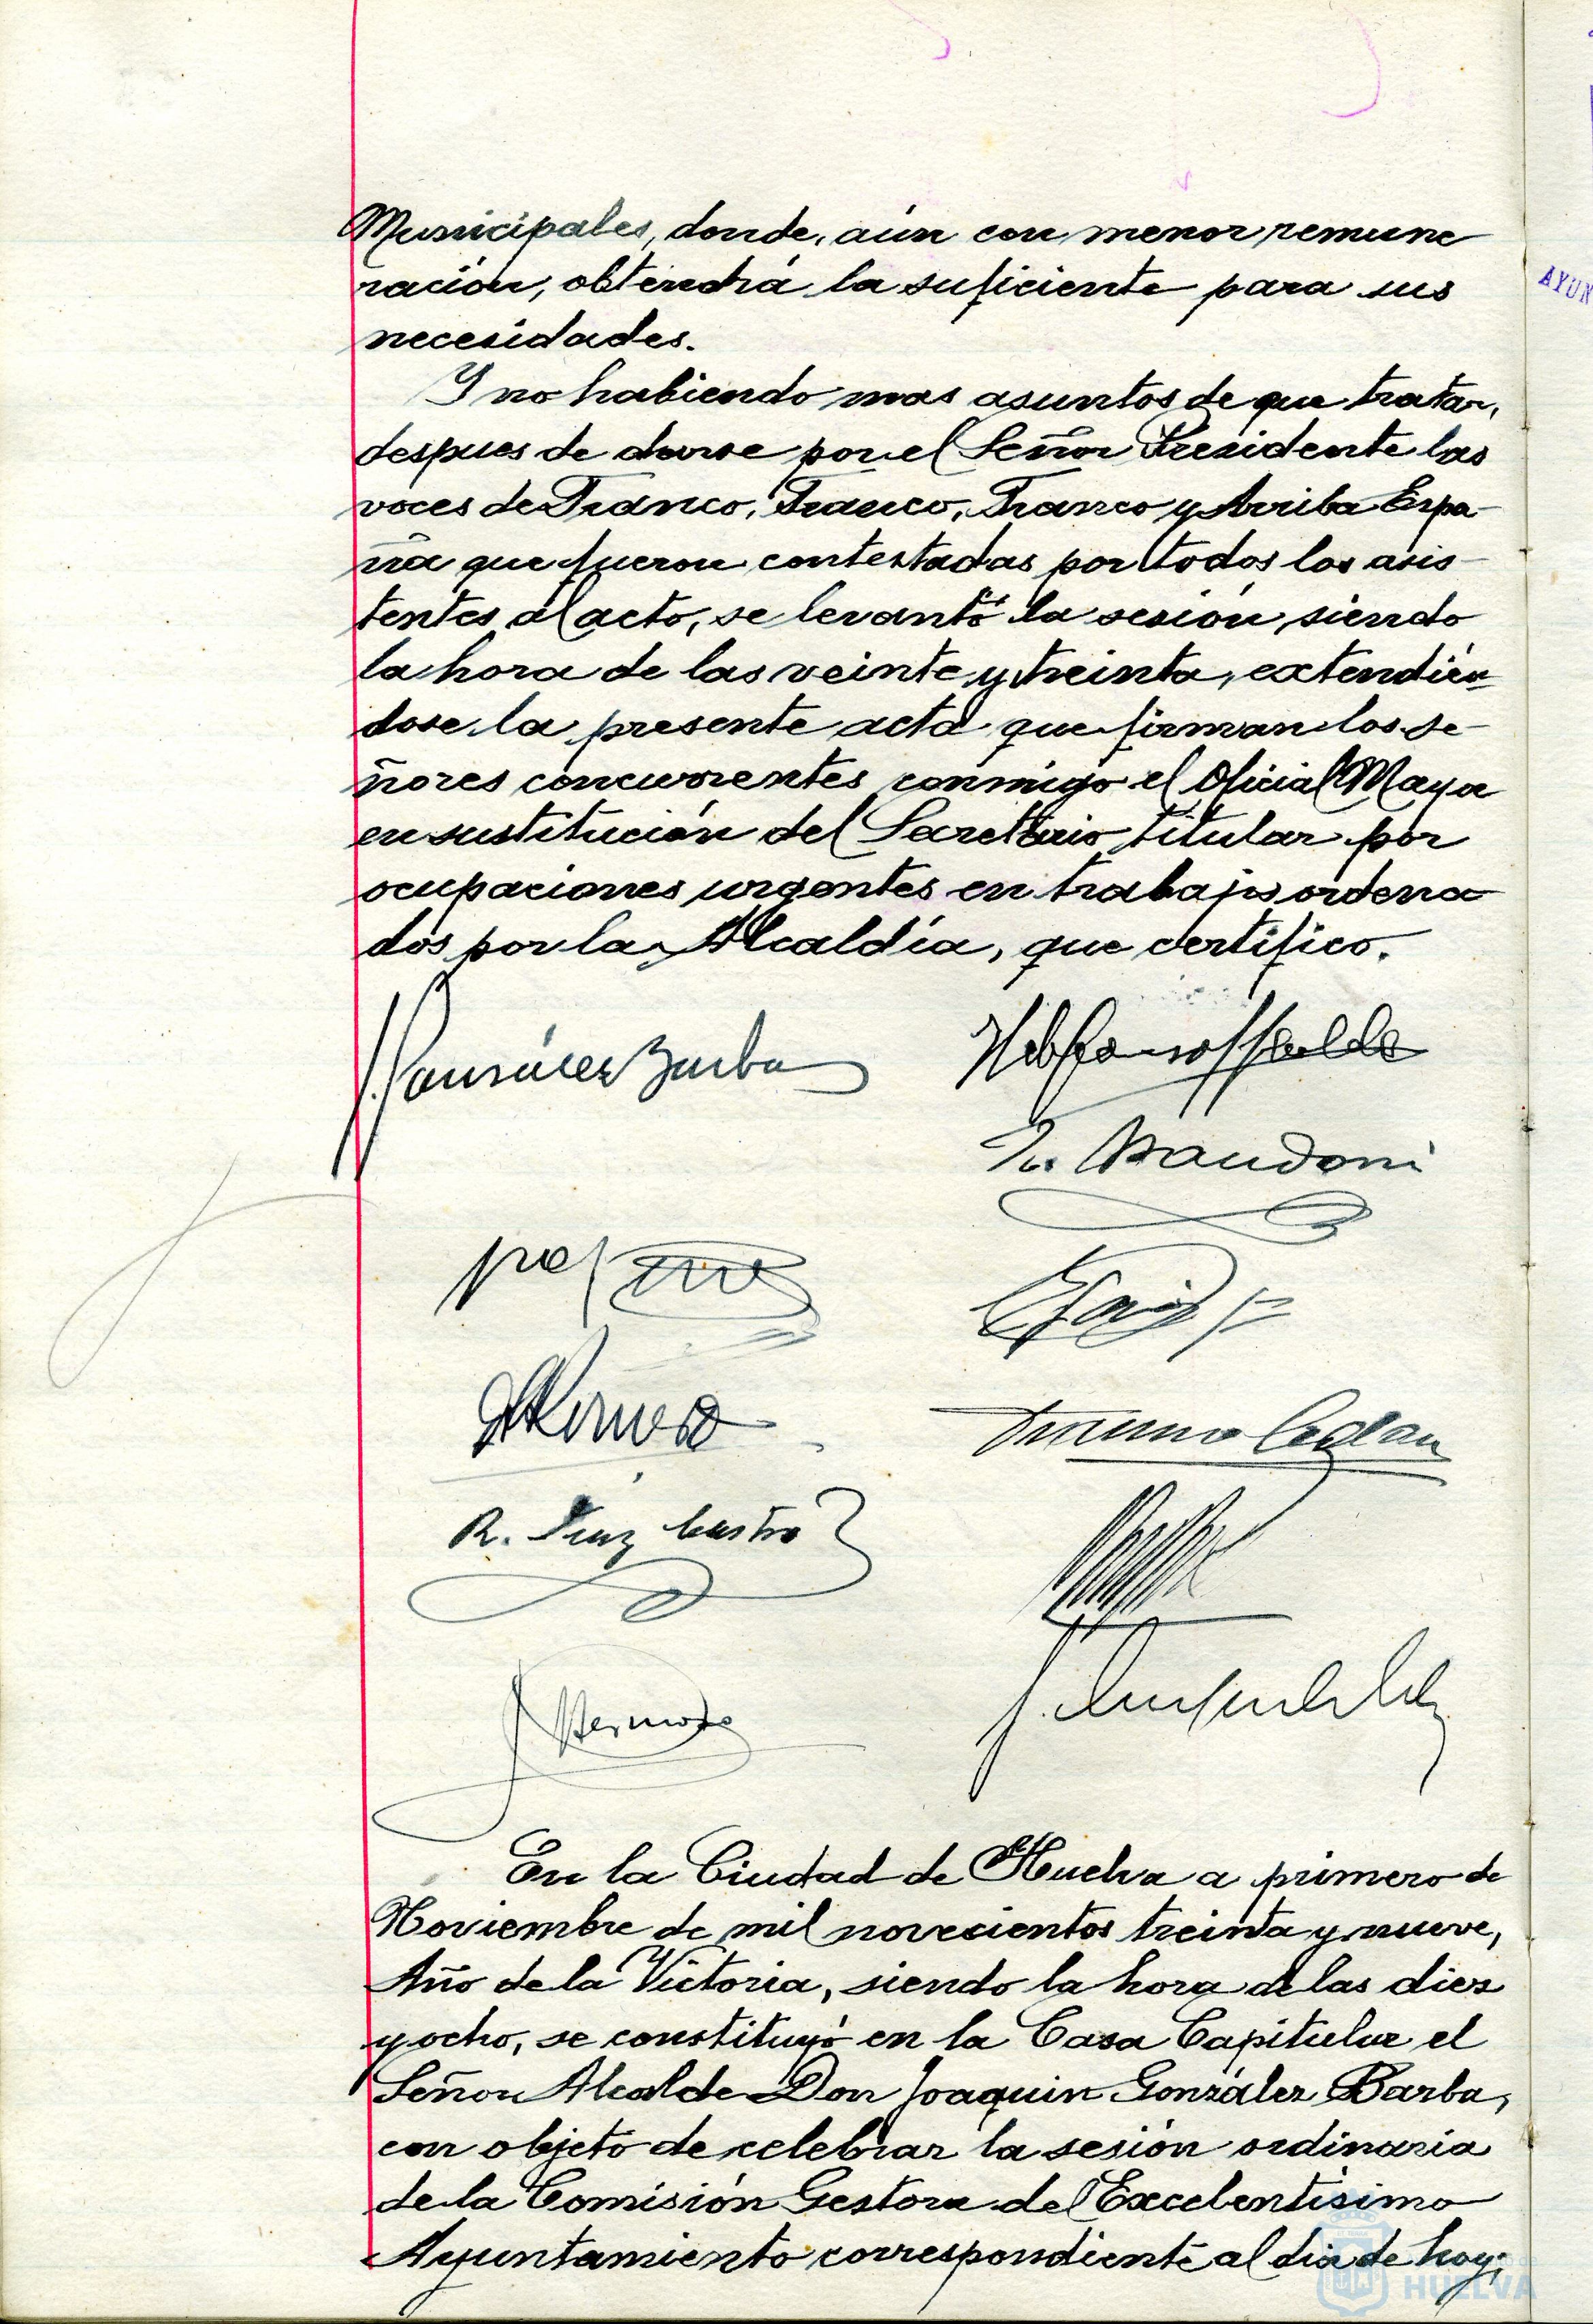 Municipales, donde, aún con menor remune
ración, obtendrá la suficiente para sus
necesidades.
Y no habiendo mas asuntos de que tratar,
despues de darse por el Señor Presidente las
voces de Franco, Franco, Franco y Arriba Espa-
ña que fueron contestadas por todos los asis-
tentes al acto, se levantó la sesión, siendo
la hora de las veinte y treinta, extendién-
dose la presente acta que firman los se-
ñores concurrentes conmigo el Oficial Mayor
en sustitución del Secretario titular por
ocupaciones urgentes en trabajos ordena
dos por la Alcaldía, que certifico.
J. González Barba
R. Díaz Castro
J. Hermoso
En la Ciudad de Huelva a primero de
Noviembre de mil novecientos treinta y nueve,
Año de la Victoria, siendo la hora de las diez
y ocho, se constituyó en la Casa Capitular el
Señor Alcalde Don Joaquin González Barba,
con objeto de celebrar la sesión ordinaria
de la Comisión Gestora del Excelentísimo
Ayuntamiento correspondiente al día de hoy,
HUELVA
AYUN